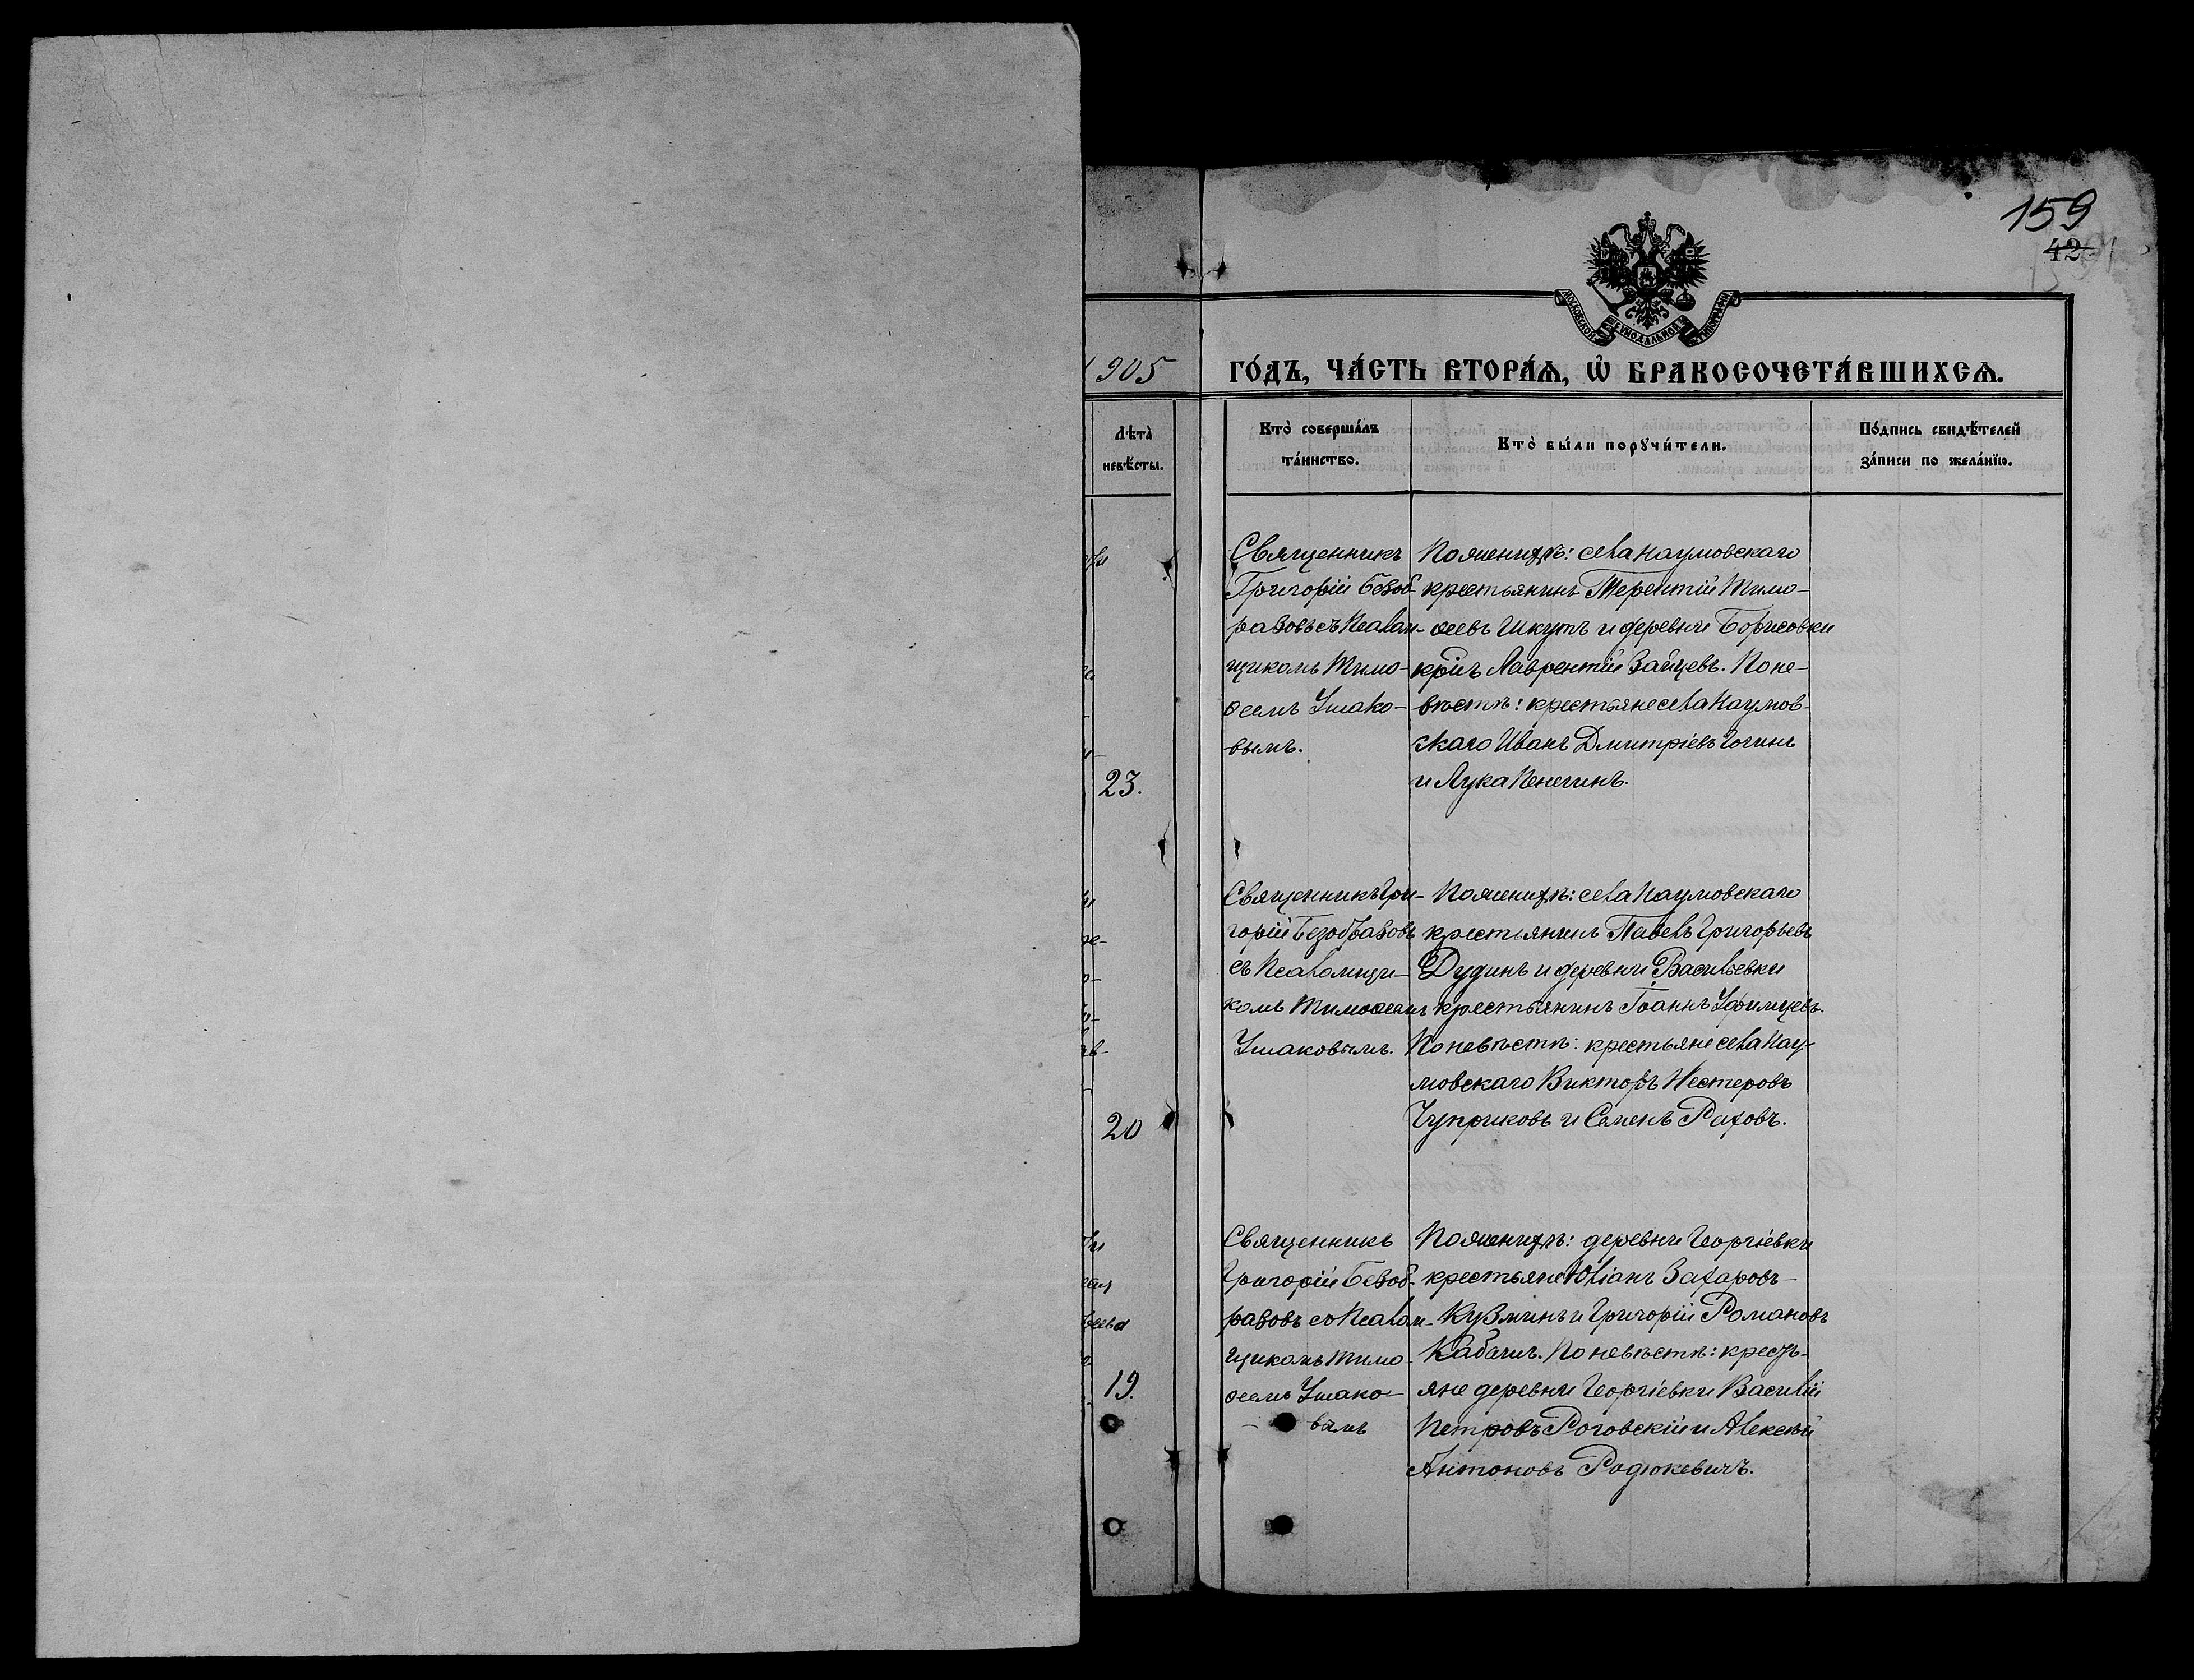 159
42
МОСКОВСКОЙ СѴНОДАЛЬНОЙ ТИПОГРАФІИ
1905 ГО́ДЪ, ЧА́СТЬ ВТОРА́Ѧ, Ѡ҆ БРАКОСОЧЕТА́ВШИХСѦ.
Лѣта̀
невѣ́сты.
Кто̀ соверша́лъ
та́инство.
Кто̀ бы́ли порꙋчи́тели.
По́дпись свидѣ́телей
за́писи по жела́нїю.
Священникъ
Григорій Безоб-
разовъ съ Псалом-
щикомъ Тимо-
ѳеемъ Ушако-
вымъ.
По женихѣ: села Наумовскаго
крестьянинъ Терентій Тимо-
ѳеевъ Шкутъ и деревни Борисовки
кр҃інъ Лаврентій Зайцевъ. По не-
вѣстѣ: крестьяне села Наумов-
скаго Иванъ Дмитріевъ Гогинъ
и Лука Пенегинъ.
23.
Священникъ Гри-
горій Безобразовъ
съ Псаломщи-
комъ Тимоѳеемъ
Ушаковымъ.
По женихѣ: села Наумовскаго
крестьянинъ Павелъ Григорьевъ
Дудинъ и деревни Васильевки
крестьянинъ Іоаннъ Уфимцевъ.
По невѣстѣ: крестьяне села Нау-
мовскаго Викторъ Нестеровъ
Чуприковъ и Семенъ Раховъ.
20
Священникъ
Григорій Безоб-
разовъ съ Псалом-
щикомъ Тимо-
ѳеемъ Ушако-
вымъ
По женихѣ: деревни Георгіевки
крестьяне Юліанъ Захаровъ
Кузминъ и Григорій Романовъ
Кабачил. По невѣстѣ: кресть-
яне деревни Георгіевки Василій
Петровъ Роговскій и Алексѣй
Антоновъ Родюкевичъ.
19.